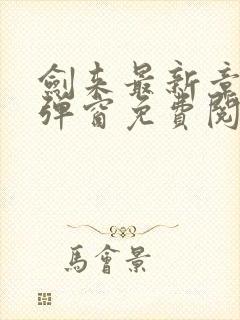 劍来最新章
彈窗免費閱
馬會景